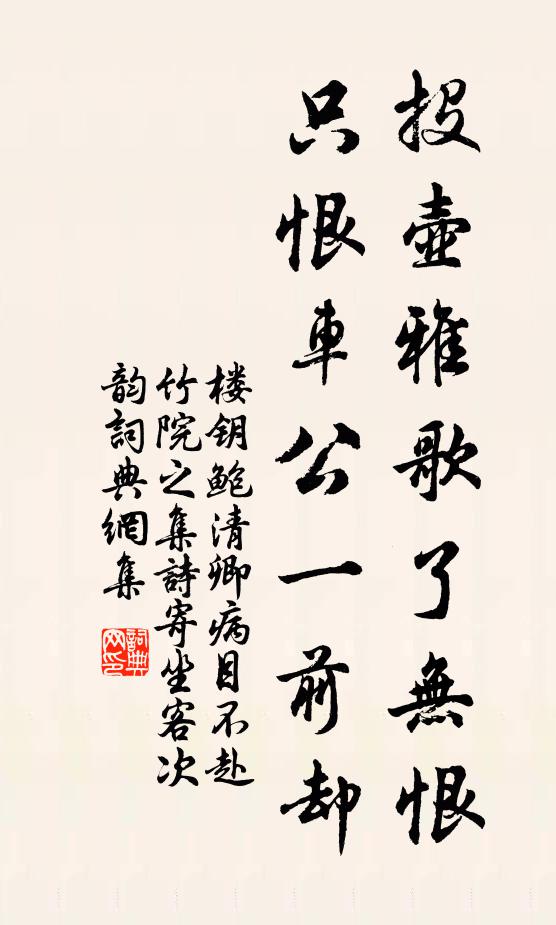 投壺雅歌了無恨
只恨車公一前却
楼钥鲍清卿病目不赴
竹院之集詩寄坐客次
韵詞典網集
詞典網印